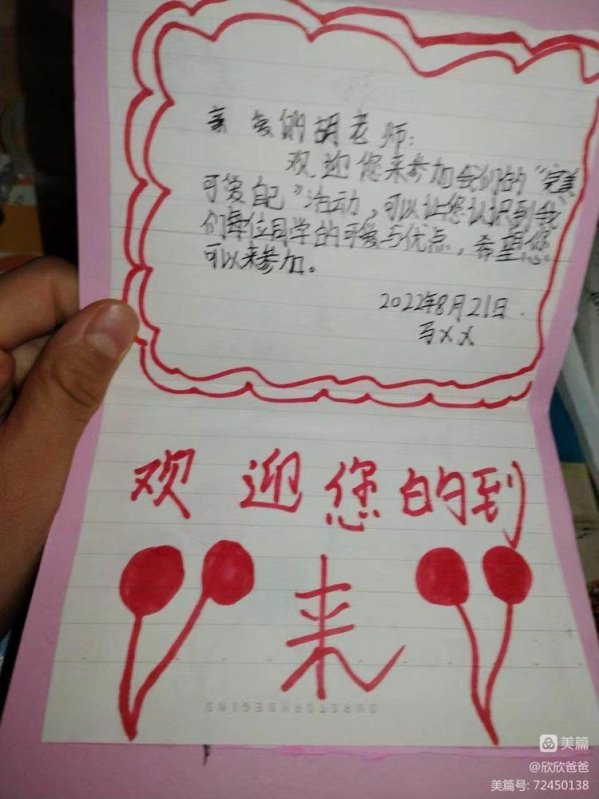 亲爱的胡老师：
欢迎您来参加我们的“完美
可爱自己”活动，可以让您认识到我
们每位同学的可爱与优点，希望您
可以来参加。
2022年8月21日
马××
欢迎您的到
来
OURSTORYBEGINS
美篇
@欣欣爸爸
美篇号: 72450138